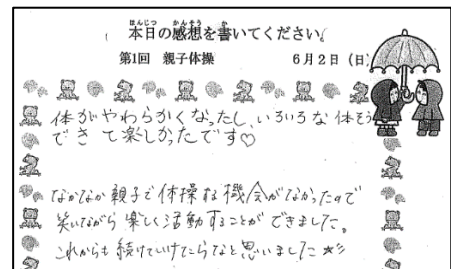 ほんじつ かんそう か
本日の感想を書いてください。
第1回 親子体操 6月2日(日)
体がやわらかくなったし、いろいろな体そう
できて楽しかったです♡
なかなか親子で体操する機会がなかったので
笑いながら楽しく活動することができました。
これからも続けていけたらなと思いました☆彡